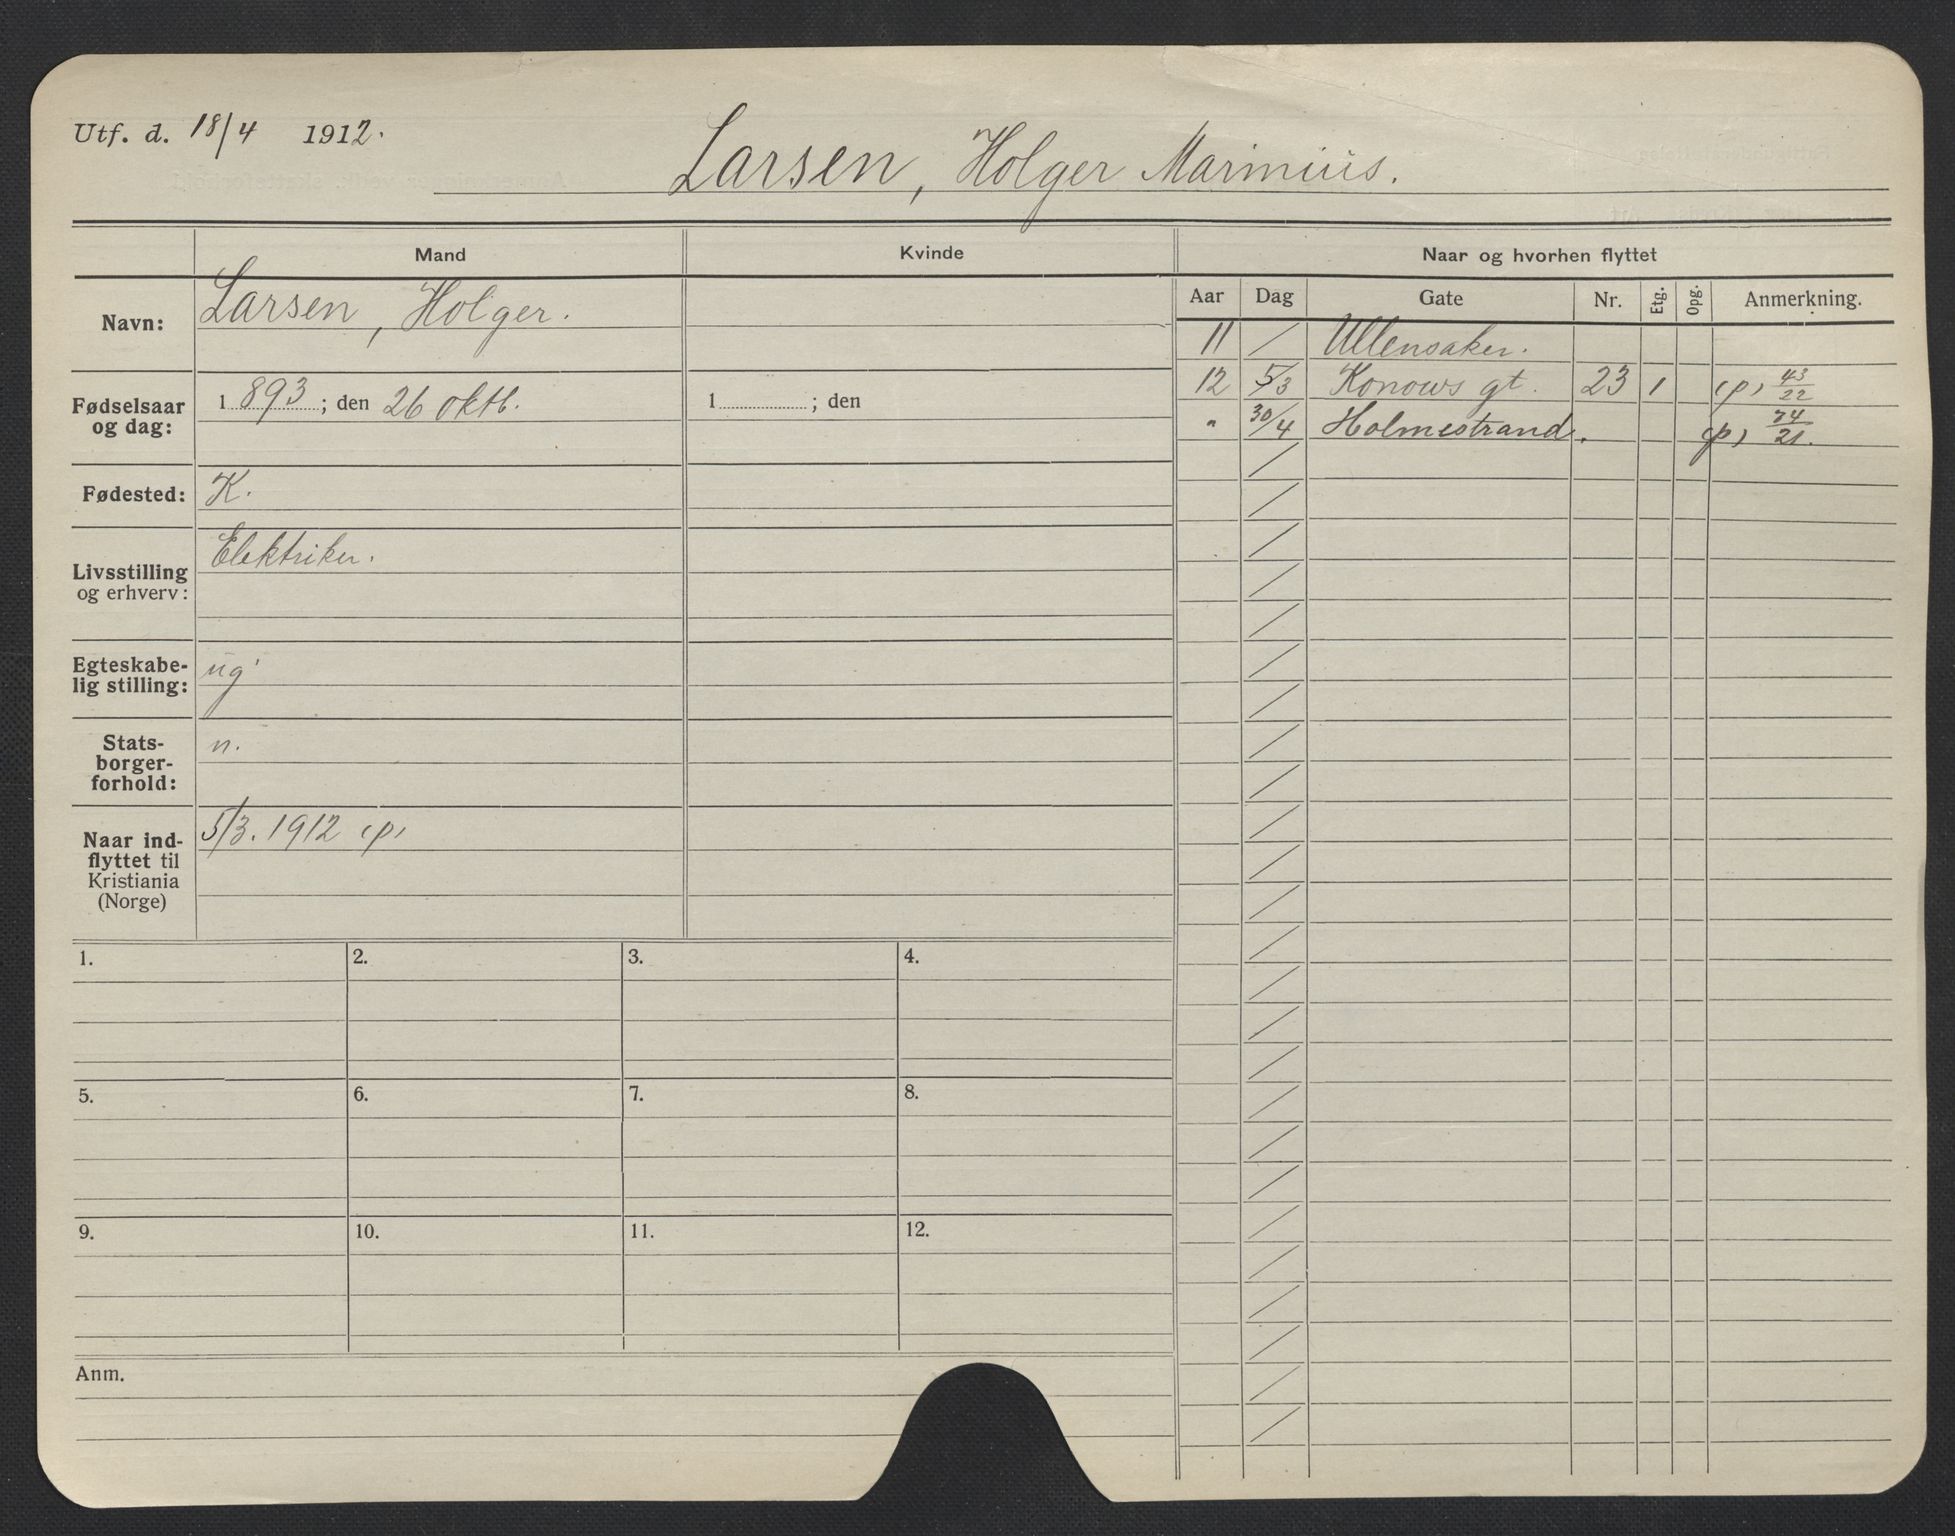 Utf. d. 18/4 1912.
Larsen, Holger Marinius.
Mand
Kvinde
Naar og hvorhen flyttet
Navn:
Larsen, Holger.
Aar Dag Gate Nr. Etg. Opg. Anmerkning.
11 / Ullensaker.
12 5/3 Konows gt. 23 1 (p) 43/22
" 30/4 Holmestrand. (p) 74/21.
Fødselsaar og dag:
1893; den 26 oktb.
1 ; den
Fødested:
K.
Livsstilling
og erhverv:
Elektriker.
Egteskabe-
lig stilling:
ug.
Stats-
borger-
forhold:
n.
Naar ind-
flyttet til
Kristiania
(Norge)
5/3. 1912 (p)
1. 2. 3. 4.
5. 6. 7. 8.
9. 10. 11. 12.
Anm.